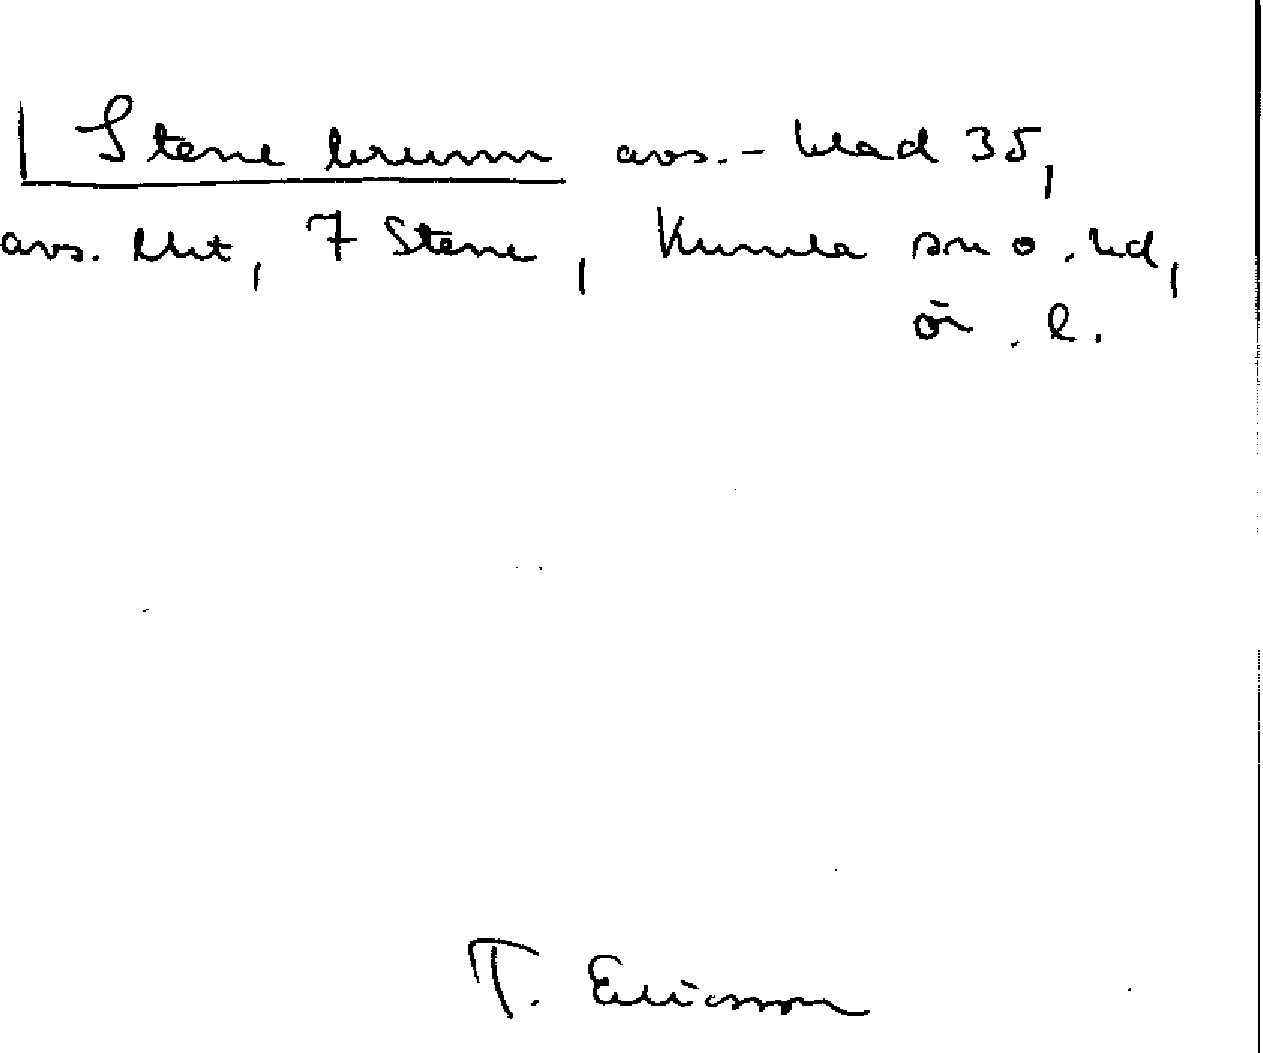 Stene brunn avs.-blad 35,
avs. utt, 7 Stene, Kumla sn o. hd,
ör. l.
T. Ericsson